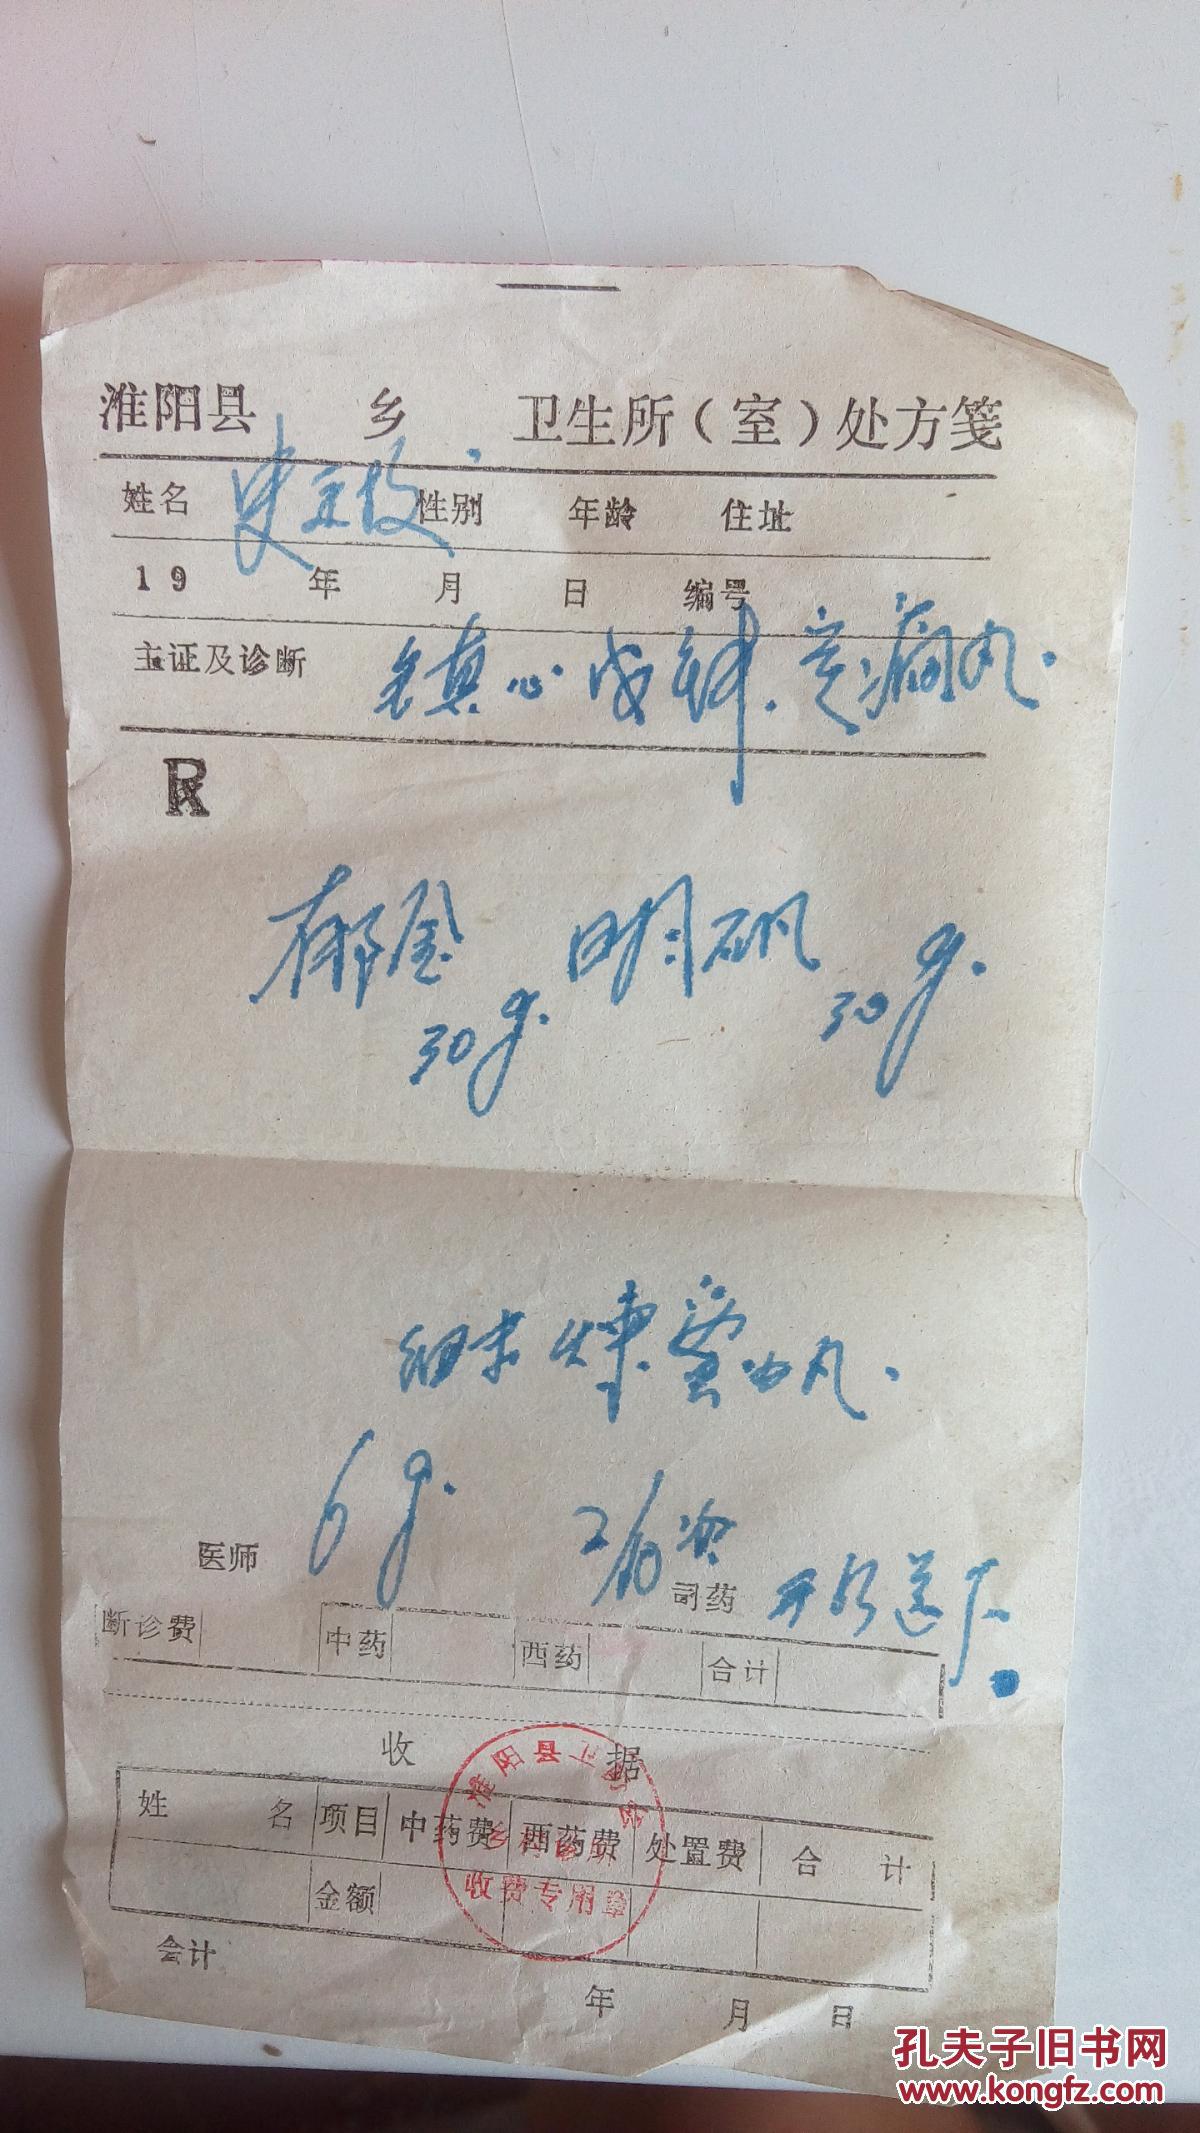 淮阳县 乡 卫生所(室)处方笺
姓名 史 性别 年龄 住址
19 年 月 日 编号
主证及诊断 镇心 定痫丸.
R
郁金 30g. 明矾 30g.
细末 炼蜜为丸.
医师 6g. 2/日 次 司药 开水送下.
断诊费 中药 西药 合计
收 据
姓 名 项目 中药费 西药费 处置费 合 计
金额
淮阳县卫
收费专用章
会计
年 月 日
孔夫子旧书网
www.kongfz.com